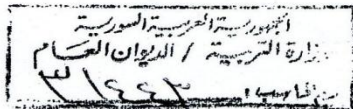 الجمهورية العربية السورية
وزارة التربية / الديوان العام
٣١٤٤٣